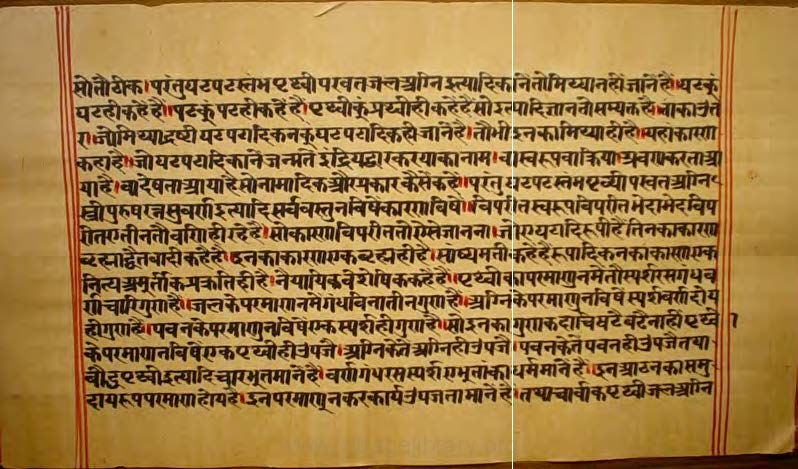 सो तौ ठीक। परंतु घट पट स्तंभ पृथ्वी परवत जल अग्नि इत्यादिकानै तो मिथ्या नही जानै है। घटकुं
घट ही कहै है। पटकुं पट ही कहै है। पृथ्वीकुं पृथ्वी ही कहै है सो इत्यादि जान तो सम्यक्त है। ताका उत
र। जो मिथ्याद्रष्टी घट पटादिकनकुं घट पटादिक ही जानै है। तो भी इनका मिथ्या ही है। यहा कारण
कहा है। जो घट पटादिकानै जन्मतै इंद्रियद्वार कर याका नाम। वा स्वरूप वा क्रिया। श्रवण करता आ
या है। वा देषता आया है सो नामादिक और प्रकार कैसै कहै। परंतु घट पट स्तंभ पृथ्वी परवत अग्नि
स्त्री पुरुष रजत सुवर्ण इत्यादि सर्व वस्तुन विषै कारण विषै। विपरीत स्वरूप विपरीत भेदाभेद विप
रीत ए तीन तौ वणि ही रहै है। सो कारण विपरीत तो ऐसे जानना। जो ए घटादि रूपी है तिनका कारण
ब्रह्माद्वैतवादी कहै है। इनका कारण एक ब्रह्म ही है। सांष्यमती कहै है रूपादिकनका कारण एक
नित्य अमूर्तीक प्रक्रति ही है। नैयायिक वैशेषिक कहै है। पृथ्वी का परमाणुन मै तो स्पर्श रस गंध व
र्ण चारि गुण है। जल के परमाणन मै गंध विना तीन गुण है। अग्नि के परमाणन विषै स्पर्श वर्ण दोय
ही गुण है। पवन के परमाणुन विषै एक स्पर्श ही गुण है। सो इनका गुण कदाचि घटै बढै नाही पृथ्वी १
के परमाणन विषै एक पृथ्वी ही उपजै। अग्नि केतै अग्नि ही उपजै। पवन केतै पवन ही उपजै तथा
पृथ्वी इत्यादि चार भूत मानै है। वर्ण गंध रस स्पर्श ए भूतां का धर्म मानै है। इन आठन का समु
दाय रूप परमाण होय है। इन परमाणुन कर कार्य उपजना मानै है। तथा चार्वाक पृथ्वी जल अग्नि